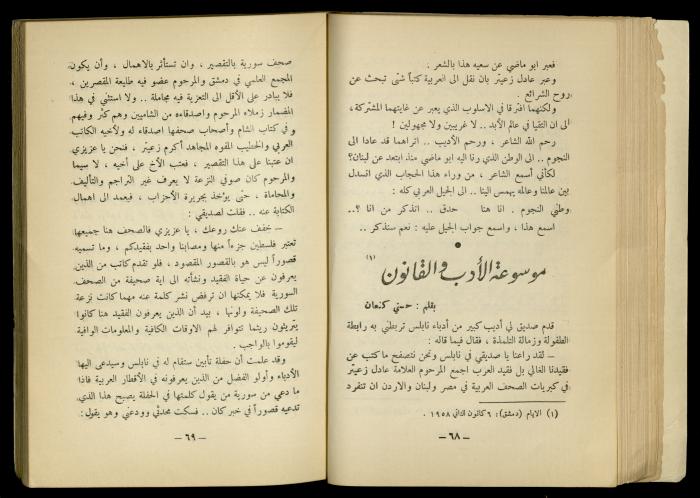 فعبر ابو ماضي عن سعيه هذا بالشعر .
وعبر عادل زعيتر بان نقل الى العربية كتباً شتى تبحث عن
روح الشرائع .
ولكنهما افترقا في الاسلوب الذي يعبر عن غايتهما المشتركة،
الى ان التقيا في عالم الأبد .. لا غريبين ولا مجهولين !
رحم الله الشاعر ، ورحم الأديب .. اتراهما قد عادا الى
النجوم .. الى الوطن الذي رنا اليه ابو ماضي منذ ابتعد عن لبنان؟
لكأني أسمع الشاعر ، من وراء هذا الحجاب الذي انسدل
بين عالمنا وعالمه يهمس الينا .. الى الجيل العربي كله :
وطني النجوم . انا هنا حدق .. اتذكر من انا ؟..
اسمع هذا ، واسمع جواب الجيل عليه : نعم سنذكر ..
●
موسوعة الأدب والقانون (١)
بقلم : حسني كنعان
قدم صديق لي أديب كبير من أدباء نابلس تربطني به رابطة
الطفولة وزمالة التلمذة ، فقال فيما قاله :
– لقد راعنا يا صديقي في نابلس ونحن نتصفح ما كتب عن
فقيدنا الغالي بل فقيد العرب اجمع المرحوم العلامة عادل زعيتر
في كبريات الصحف العربية في مصر ولبنان والاردن ان تنفرد
(١) الايام (دمشق): ٦ كانون الثاني ١٩٥٨ .
– ٦٨ –
صحف سورية بالتقصير ، وان تستأثر بالاهمال ، وأن يكون
المجمع العلمي في دمشق والمرحوم عضو فيه طليعة المقصرين ،
فلا يبادر على الأقل الى التعزية فيه مجاملة .. ولا استثني في هذا
المضمار زملاء المرحوم واصدقاءه من الشاميين وهم كثر وفيهم
في كتاب الشام وأصحاب صحفها اصدقاء له ولأخيه الكاتب
العربي والخطيب المفوه المجاهد أكرم زعيتر ، فنحن يا عزيزي
ان عتبنا على هذا التقصير ، فعتب الأخ على أخيه ، لا سيما
والمرحوم كان صوفي النزعة لا يعرف غير التراجم والتأليف
والمحاماة ، حتى يؤخذ بجريرة الأحزاب ، فيعمد الى اهمال
الكتابة عنه .. فقلت لصديقي :
– خفف عنك روعك ، يا عزيزي فالصحف هنا جميعها
تعتبر فلسطين جزءاً منها ومصابنا واحد بفقيدكم ، وما تسميه
قصوراً ليس هو بالقصور المقصود ، فلو تقدم كاتب من الذين
يعرفون عن حياة الفقيد ونشأته الى اية صحيفة من الصحف
السورية فلا يمكنها ان ترفض نشر كلمة عنه مهما كانت نزعة
تلك الصحيفة ولونها ، بيد أن الذين يعرفون الفقيد هنا كانوا
يتريثون ريثما تتوافر لهم الاوقات الكافية والمعلومات الوافية
ليقوموا بالواجب .
وقد علمت أن حفلة تأبين ستقام له في نابلس وسيدعى اليها
الأدباء وأولو الفضل من الذين يعرفونه في الأقطار العربية فاذا
ما دعي من سورية من يقول كلمتها في الحفلة يصبح هذا الذي
تدعيه قصوراً في خبر كان .. فسكت محدثي وودعني وهو يقول :
– ٦٩ –